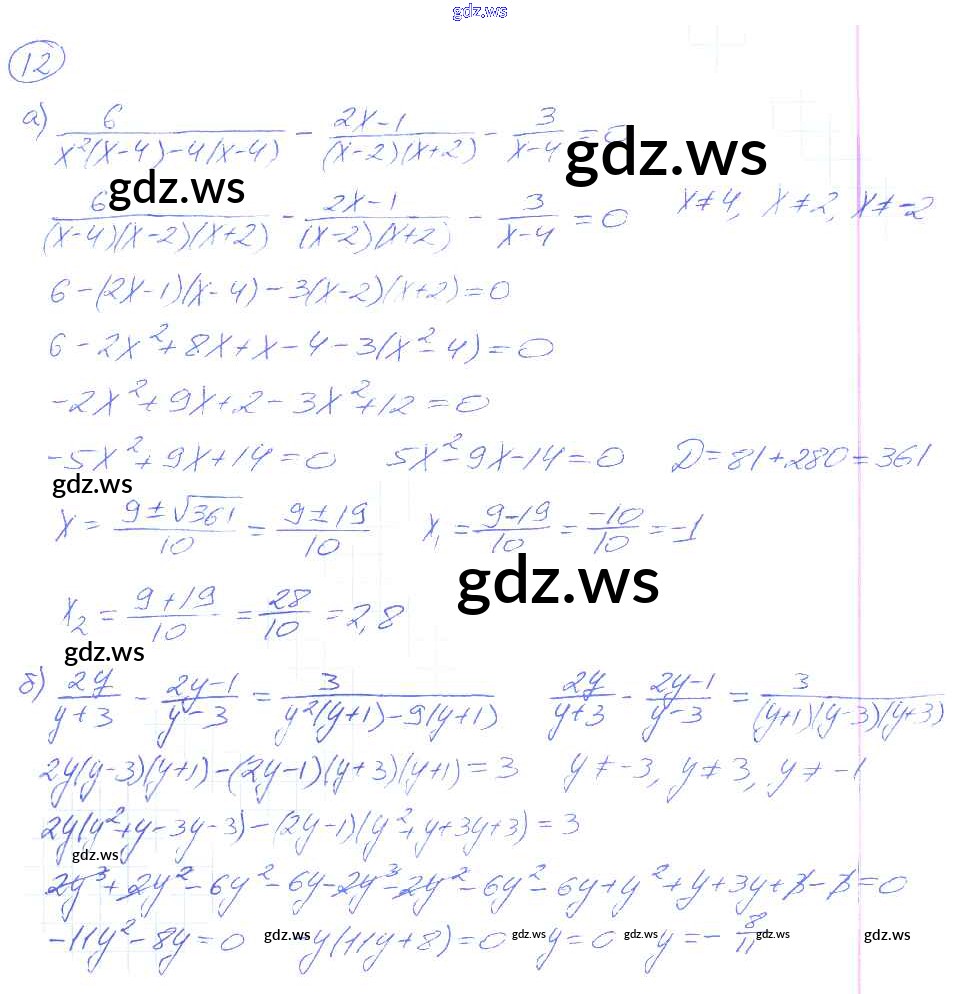 gdz.ws
12
а) 6/(x²(x-4)-4(x-4)) - (2x-1)/((x-2)(x+2)) - 3/(x-4) = 0
gdz.ws gdz.ws
6/((x-4)(x-2)(x+2)) - (2x-1)/((x-2)(x+2)) - 3/(x-4) = 0 x≠4, x≠2, x≠-2
6-(2x-1)(x-4)-3(x-2)(x+2)=0
6-2x²+8x+x-4-3(x²-4)=0
-2x²+9x+2-3x²+12=0
-5x²+9x+14=0 5x²-9x-14=0 D=81+280=361
gdz.ws
x = (9±√361)/10 = (9±19)/10 x₁ = (9-19)/10 = -10/10 = -1
gdz.ws
x₂ = (9+19)/10 = 28/10 = 2,8
gdz.ws
б) 2y/(y+3) - (2y-1)/(y-3) = 3/(y²(y+1)-9(y+1)) 2y/(y+3) - (2y-1)/(y-3) = 3/((y+1)(y-3)(y+3))
2y(y-3)(y+1)-(2y-1)(y+3)(y+1)=3 y≠-3, y≠3, y≠-1
2y(y²+y-3y-3)-(2y-1)(y²+y+3y+3)=3
gdz.ws
2y³+2y²-6y²-6y-2y³-2y²-6y²-6y+y²+y+3y+3-3=0
-11y²-8y=0 gdz.ws -y(11y+8)=0 gdz.ws y=0 gdz.ws y=-8/11 gdz.ws gdz.ws